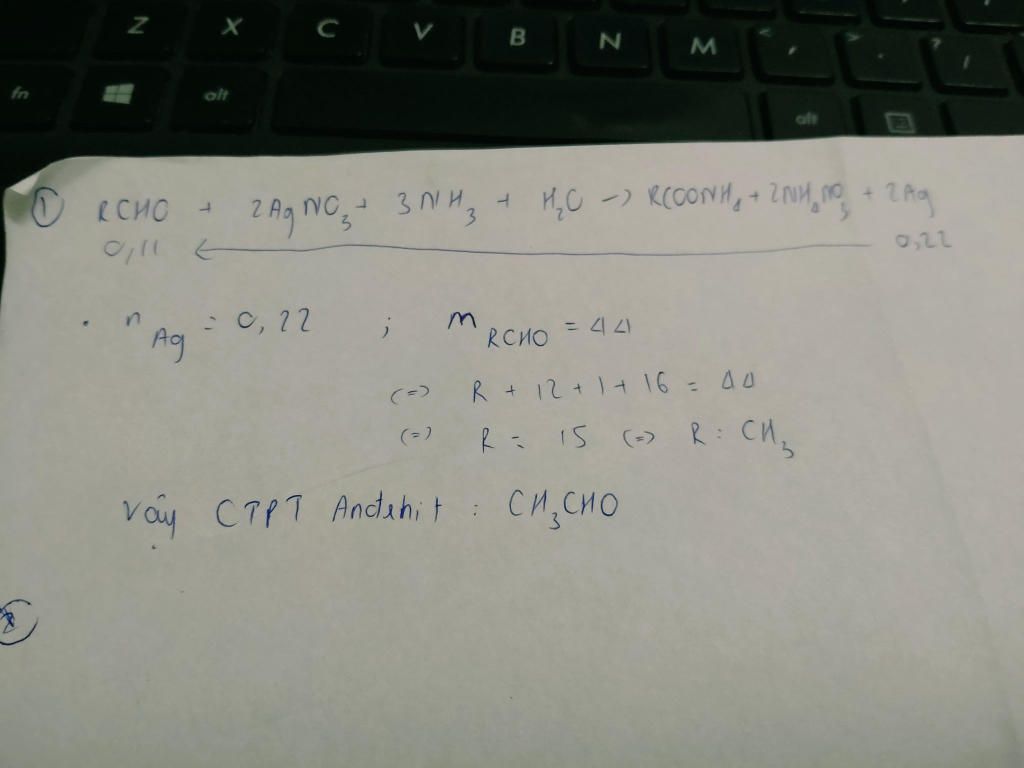 Z X C V B N M < , > . ? /
fn alt alt
① RCHO + 2AgNO₃ + 3NH₃ + H₂O -> RCOONH₄ + 2NH₄NO₃ + 2Ag
0,11 ← 0,22
• n Ag = 0,22 ; M RCHO = 44
(=) R + 12 + 1 + 16 = 44
(=) R = 15 (=) R : CH₃
Vậy CTPT Anđehit : CH₃CHO